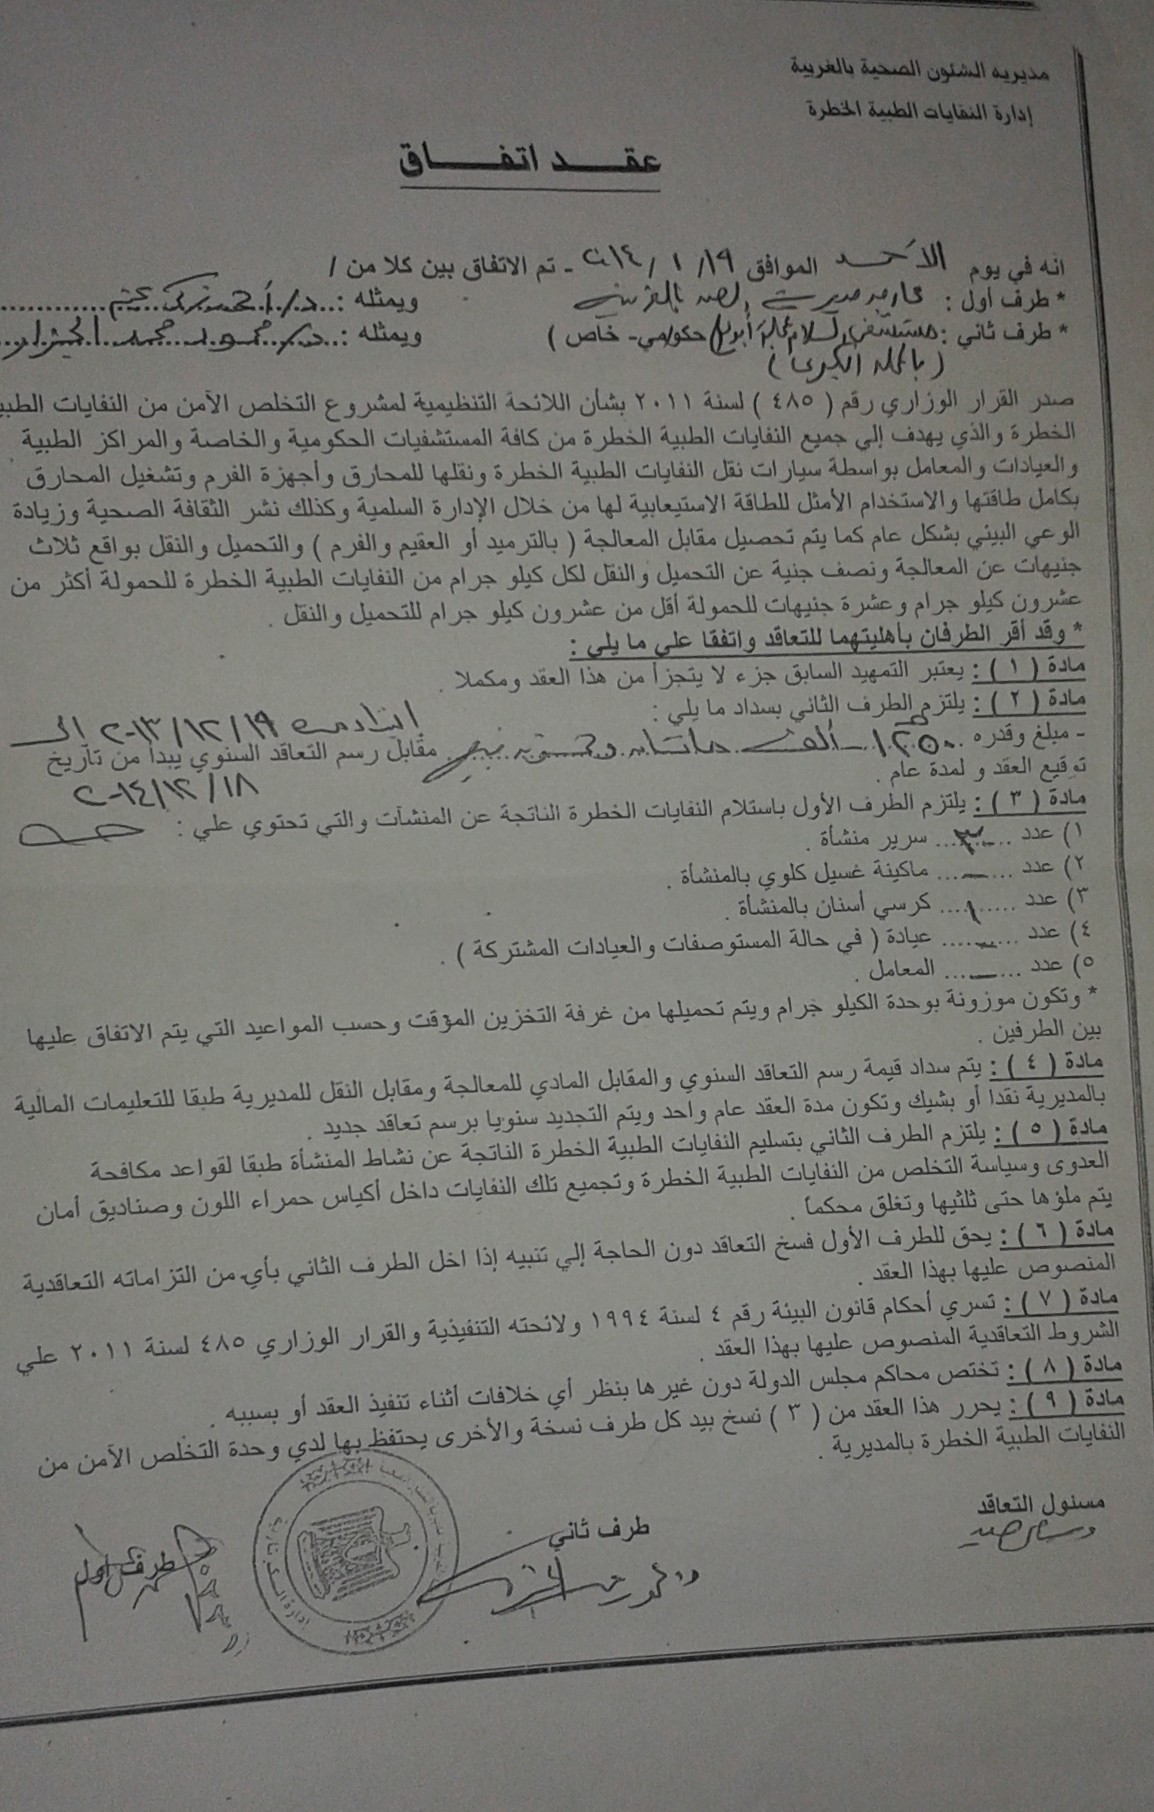 مديريه الشئون الصحية بالغربية
إدارة النفايات الطبية الخطرة
عقد اتفاق
انه في يوم الأحد الموافق ١٩/ ١ /٢٠١٤ - تم الاتفاق بين كلا من /
* طرف أول : ويمثله : د/ أحمد
* طرف ثاني : مستشفى السلام حكومي - خاص ) ويمثله : د/ محمود محمد الجزار
( بالمحلة الكبرى )
صدر القرار الوزاري رقم ( ٤٨٥ ) لسنة ٢٠١١ بشأن اللائحة التنظيمية لمشروع التخلص الآمن من النفايات الطبي
الخطرة والذي يهدف إلي جميع النفايات الطبية الخطرة من كافة المستشفيات الحكومية والخاصة والمراكز الطبية
والعيادات والمعامل بواسطة سيارات نقل النفايات الطبية الخطرة ونقلها للمحارق وأجهزة الفرم وتشغيل المحارق
بكامل طاقتها والاستخدام الأمثل للطاقة الاستيعابية لها من خلال الإدارة السلمية وكذلك نشر الثقافة الصحية وزيادة
الوعي البيني بشكل عام كما يتم تحصيل مقابل المعالجة ( بالترميد أو العقيم والفرم ) والتحميل والنقل بواقع ثلاث
جنيهات عن المعالجة ونصف جنية عن التحميل والنقل لكل كيلو جرام من النفايات الطبية الخطرة للحمولة أكثر من
عشرون كيلو جرام وعشرة جنيهات للحمولة أقل من عشرون كيلو جرام للتحميل والنقل .
* وقد أقر الطرفان بأهليتهما للتعاقد واتفقا علي ما يلي :
مادة ( ١ ) : يعتبر التمهيد السابق جزء لا يتجزأ من هذا العقد ومكملا .
مادة ( ٢ ) : يلتزم الطرف الثاني بسداد ما يلي :
ابتداء من ١٩/ ١٢/ ٢٠١٣ إلى
- مبلغ وقدره ١٢٥٠ ألف مائتان وخمسون جنيه مقابل رسم التعاقد السنوي يبدأ من تاريخ
توقيع العقد و لمدة عام . ١٨/ ١٢/ ٢٠١٤
مادة ( ٣ ) : يلتزم الطرف الأول باستلام النفايات الخطرة الناتجة عن المنشآت والتي تحتوي علي :
١) عدد ........ سرير منشأة .
٢) عدد ...ــ... ماكينة غسيل كلوي بالمنشأة .
٣) عدد ....١.... كرسي أسنان بالمنشأة .
٤) عدد ...ــ... عيادة ( في حالة المستوصفات والعيادات المشتركة ) .
٥) عدد ...ــ... المعامل .
* وتكون موزونة بوحدة الكيلو جرام ويتم تحميلها من غرفة التخزين المؤقت وحسب المواعيد التي يتم الاتفاق عليها
بين الطرفين .
مادة ( ٤ ) : يتم سداد قيمة رسم التعاقد السنوي والمقابل المادي للمعالجة ومقابل النقل للمديرية طبقا للتعليمات المالية
بالمديرية نقدا أو بشيك وتكون مدة العقد عام واحد ويتم التجديد سنويا برسم تعاقد جديد .
مادة ( ٥ ) : يلتزم الطرف الثاني بتسليم النفايات الطبية الخطرة الناتجة عن نشاط المنشأة طبقا لقواعد مكافحة
العدوى وسياسة التخلص من النفايات الطبية الخطرة وتجميع تلك النفايات داخل أكياس حمراء اللون وصناديق أمان
يتم ملؤها حتى ثلثيها وتغلق محكماً .
مادة ( ٦ ) : يحق للطرف الأول فسخ التعاقد دون الحاجة إلي تنبيه إذا اخل الطرف الثاني بأي من التزاماته التعاقدية
المنصوص عليها بهذا العقد .
مادة ( ٧ ) : تسري أحكام قانون البيئة رقم ٤ لسنة ١٩٩٤ ولائحته التنفيذية والقرار الوزاري ٤٨٥ لسنة ٢٠١١ علي
الشروط التعاقدية المنصوص عليها بهذا العقد .
مادة ( ٨ ) : تختص محاكم مجلس الدولة دون غيرها بنظر أي خلافات أثناء تنفيذ العقد أو بسببه .
مادة ( ٩ ) : يحرر هذا العقد من ( ٣ ) نسخ بيد كل طرف نسخة والأخرى يحتفظ بها لدي وحدة التخلص الآمن من
النفايات الطبية الخطرة بالمديرية .
مسئول التعاقد طرف ثاني طرف أول